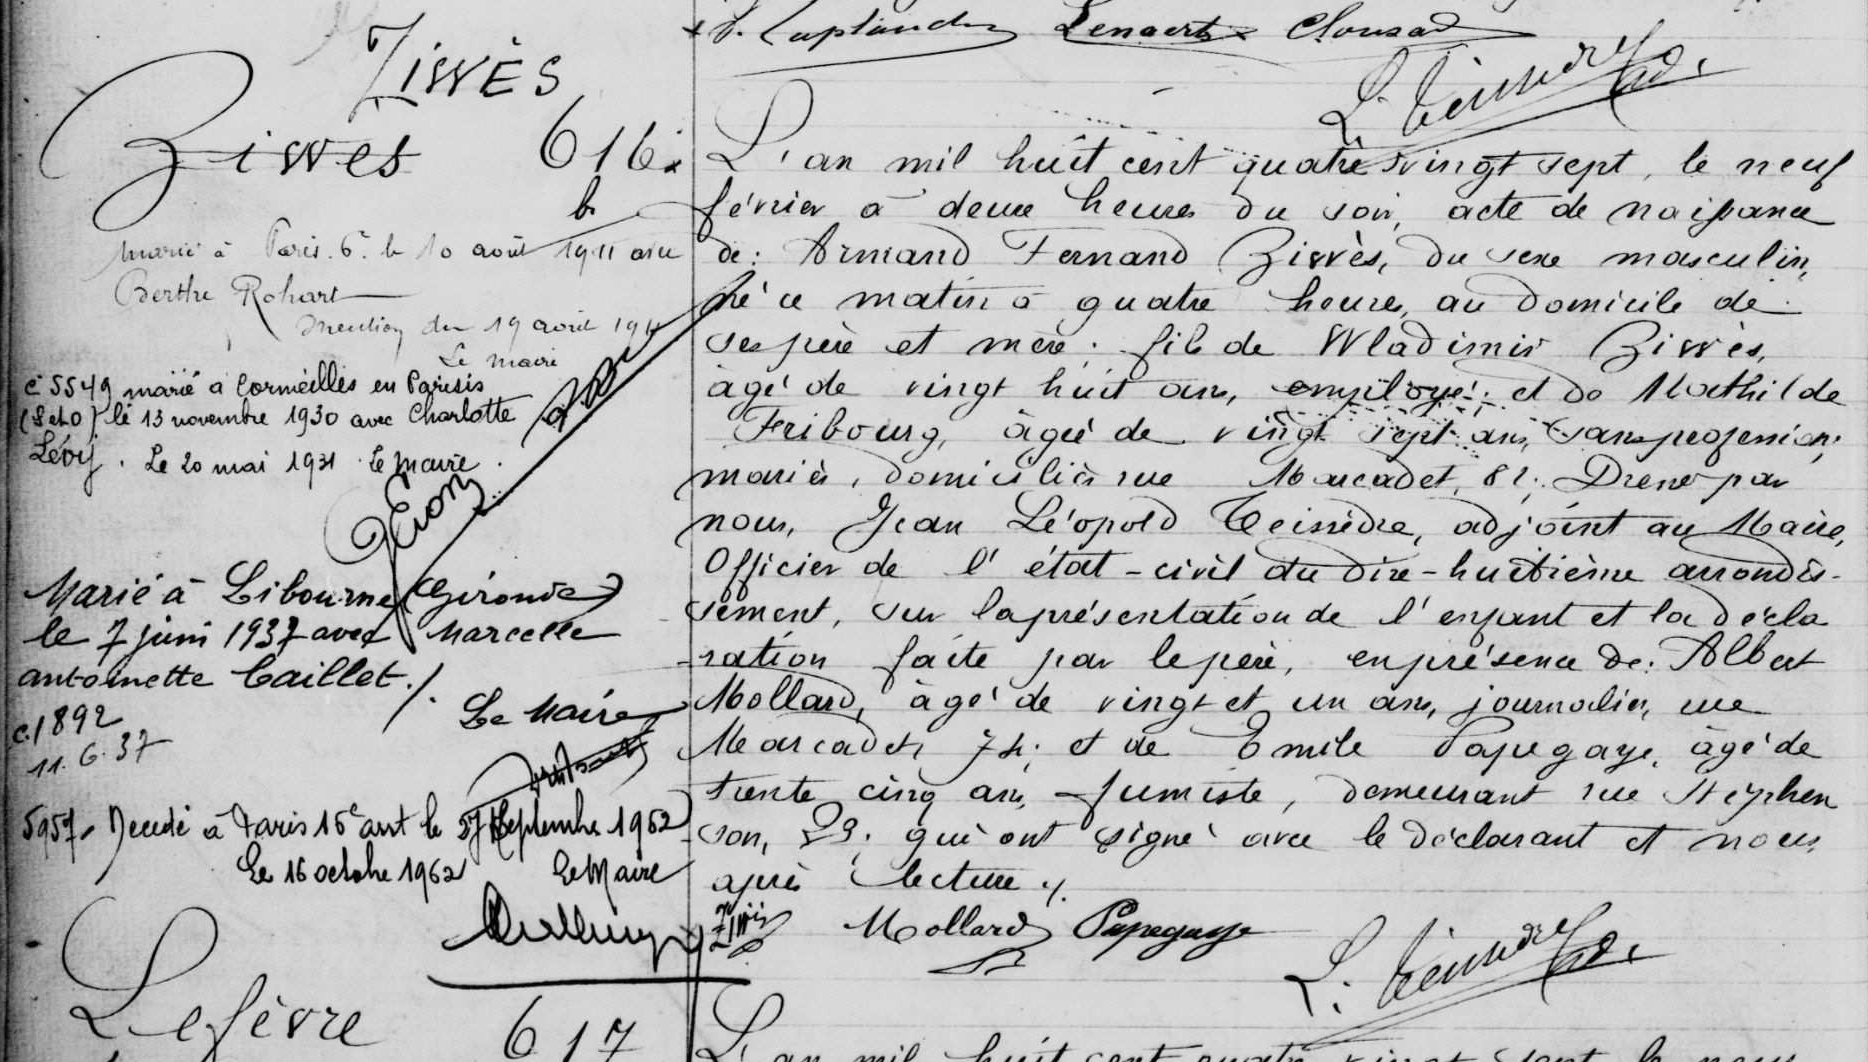 Lenaerts Clousad
L. Teissèdre Adj.
ZIWÈS
Ziwes 616
b
Marié à Paris. 6e le 10 août 1911 avec
Berthe Rohart
Mention du 19 août 1911
Le maire
C 5549 marié à Cormeilles en Parisis
(S et O) le 13 novembre 1930 avec Charlotte
Lévy. Le 20 mai 1931 Le Maire.
Marié à Libourne (Gironde)
le 7 juin 1937 avec Marcelle
antoinette Caillet./.
Le Maire
c.1892
11.6.37
5957. Décédé à Paris 15e arrt le 27 Septembre 1962
Le 16 octobre 1962 Le Maire
L'an mil huit cent quatre vingt sept, le neuf
février à deux heures du soir, acte de naissance
de: Armand Fernand Ziwès, du sexe masculin,
né ce matin à quatre heures, au domicile de
ses père et mère; fils de Wladimir Ziwès,
âgé de vingt huit ans, employé; et de Mathilde
Fribourg, âgée de vingt sept ans, sans profession;
mariés, domiciliés rue Marcadet, 82; Dressé par
nous, Jean Léopold Teissèdre, adjoint au Maire,
Officier de l'état-civil du dix-huitième arrondis-
sement, sur la présentation de l'enfant et la décla
-ration faite par le père, en présence de: Albert
Mollard, âgé de vingt et un ans, journalier, rue
Marcadet, 74; et de Emile Papegaye, âgé de
trente cinq ans, fumiste, demeurant rue Stephen
son, 29; qui ont signé avec le déclarant et nous
après lecture ./.
Ziwès Mollard Papegaye
L. Teissèdre Adj.
Lefèvre 617
L'an mil huit cent quatre vingt sept le neuf